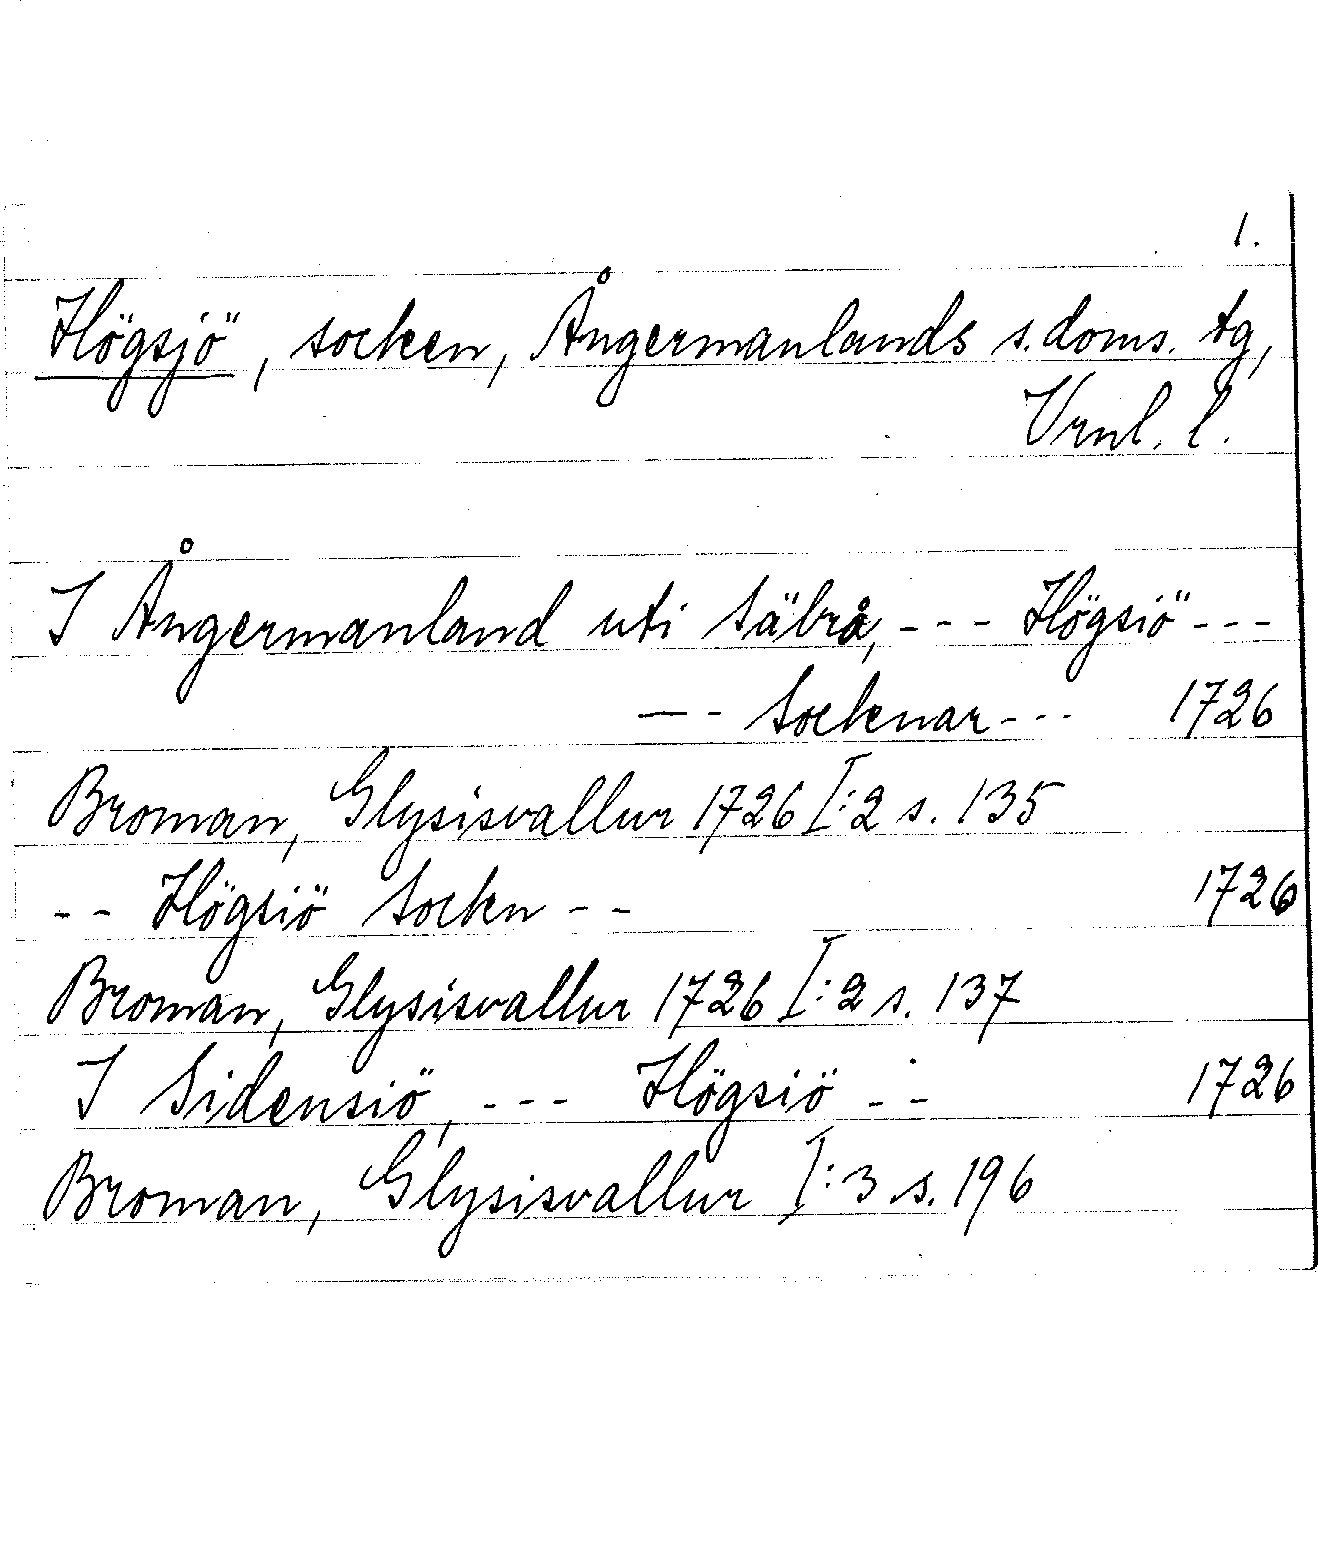 1.
Högsjö, socken, Ångermanlands s. doms. tg,
Vrnl. l.
I Ångermanland uti Säbrå, --- Högsiö ---
-- Sockenar --- 1726
Broman, Glysisvallur 1726 I:2 s. 135
-- Högsiö Sockn -- 1726
Broman, Glysisvallur 1726 I:2 s. 137
I Sidensiö, --- Högsiö -- 1726
Broman, Glysisvallur I:3 s. 196